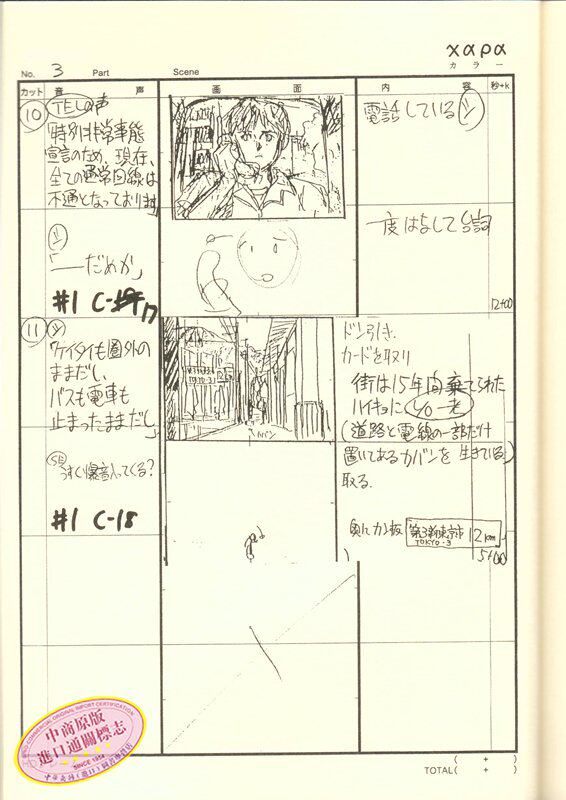 χαρα
カラー
No. 3 Part Scene
カット 音 声 画 面 内 容 秒+k
10
TELの声
「特別非常事態
宣言のため、現在、
全ての通常回線は
不通となっております」
電話しているシ
シ
「——だめか」
一度はなして台詞
#1 C-17
12+00
11
シ
「ケイタイも圏外の
ままだし、
バスも電車も
止まったままだし」
ドン引き.
カードを取り
街は15年間棄てられた
ハイキョに
(道路と電線の一部だけ
生きている)
置いてあるカバンを
取る.
カバン
SE
うすく爆音入ってくる?
#1 C-18
奥にカン板
第3新東京市 12km
TOKYO-3
5+00
TOTAL ( + )
( + )
中商原版
進口通關標志
SINCE 1954